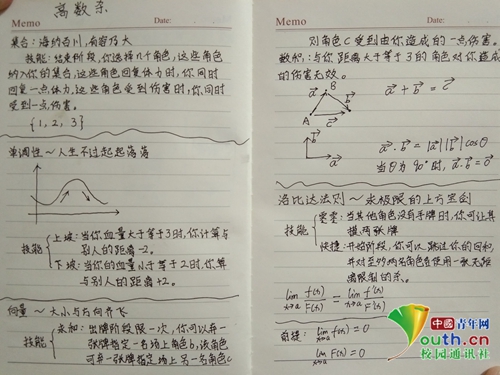 离数杀
Memo
Date:
集合:海纳百川,有容乃大
技能:结束阶段,你选择n个角色,这些角色
纳入你的集合,这些角色回复体力时,你同时
回复一点体力,这些角色受到伤害时,你同时
受到一点伤害。
{1, 2, 3}
单调性~人生不过起起落落
技能
上坡:当你血量大于等于3时,你计算与
别人的距离-2。
下坡:当你的血量小于等于2时,你算
与别人的距离+2。
向量~大小与方向齐飞
技能
求和:出牌阶段限一次,你可以弃一
张牌指定一名场上角色b,该角色
可弃一张牌指定场上另一名角色c
Memo
Date:
则角色c受到由你造成的一点伤害。
数积:与你距离大于等于3的角色对你造成
的伤害无效。
a b A B c
a + b = c
b a
a · b = |a| |b| cosθ
当θ为90°时, a · b = 0
洛比达法则~求极限的上方宝剑
技能
当其他角色没有手牌时,你可让其
摸两张牌
快捷:开始阶段,你可以跳过你的回合,
并对至多两名角色各使用一张无距
离限制的杀。
lim x→a f(x)/F(x) = lim x→a f'(x)/F'(x)
前提: lim x→a f(x) = 0
lim x→a F(x) = 0
中国青年网
Youth.cn
校园通讯社